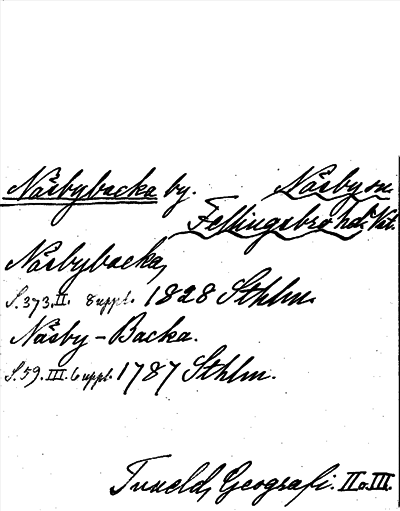 Näsbybacka by. Näsby sn.
Fellingsbro hd. Väst.
Näsbybacka,
S. 373. II. 8 uppl. 1828 Sthlm.
Näsby-Backa.
S. 59. III. 6 uppl. 1787 Sthlm.
Tuneld, Geografi. II o. III.